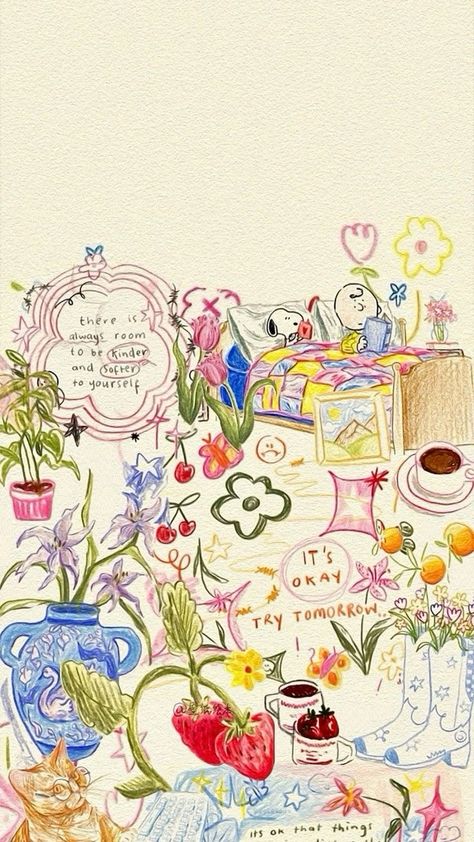 there is
always room
to be kinder
and softer
to yourself
IT'S
OKAY
TRY TOMORROW..
its ok that things